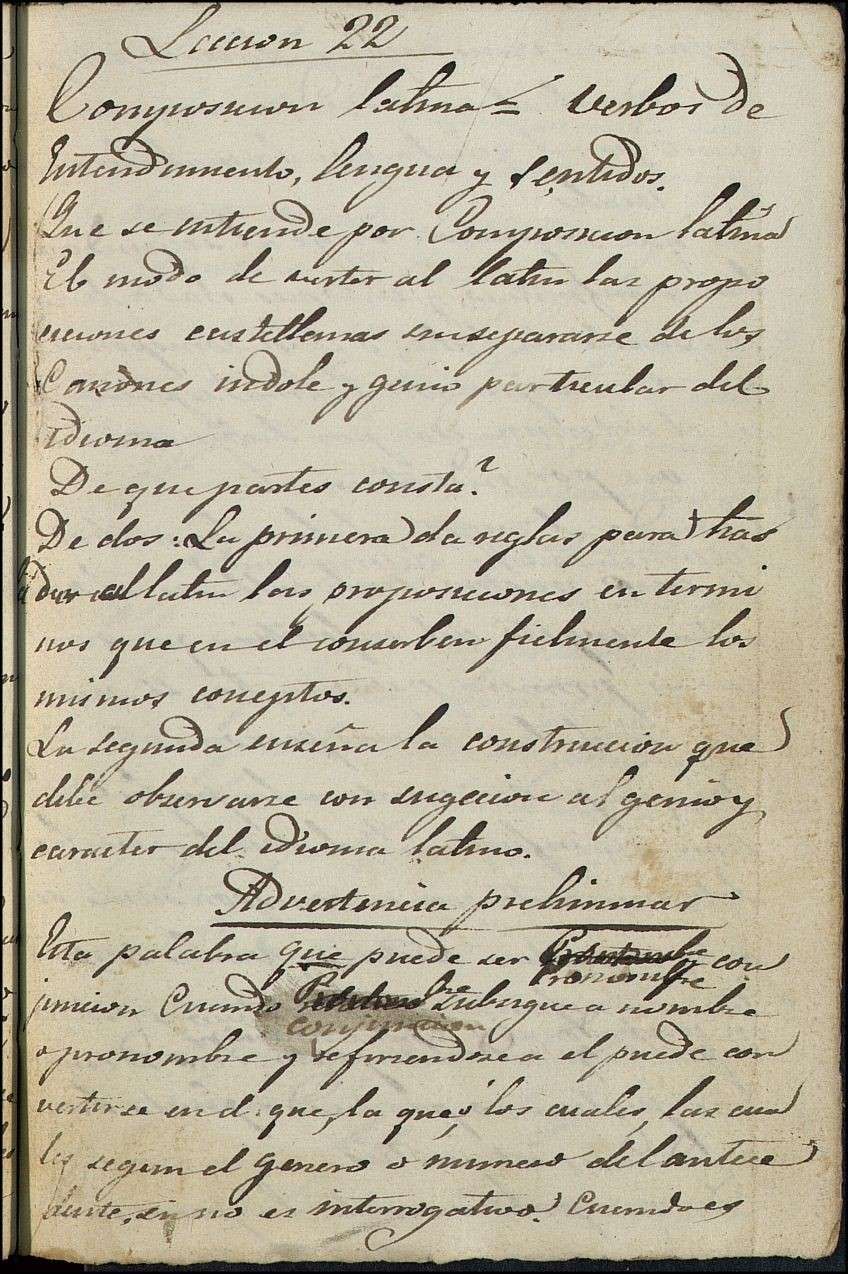 Leccion 22
Composicion latina = Verbos de
Entendimiento, lengua y sentidos.
Que se entiende por Composicion latina
El modo de verter al latin las propo
ciones castellanas sin separarse de los
Canones indole y genio particular del
idioma
De que partes consta?
De dos: La primera da reglas para tras
ladar al latin las proposiciones en termi
nos que en el conserben fielmente los
mismos conceptos.
La segunda enseña la construccion que
debe observarse con sugecion al genio y
caracter del idioma latino.
Advertencia preliminar
Esta palabra que puede ser pronombre con
juncion Cuando subsigue a nombre
conjuncion
o pronombre y refiriendose a el puede con
vertirse en el que, la que, o los cuales, las cua
les segun el genero o numero del antece
dente, si no es interrogativo. Cuando es